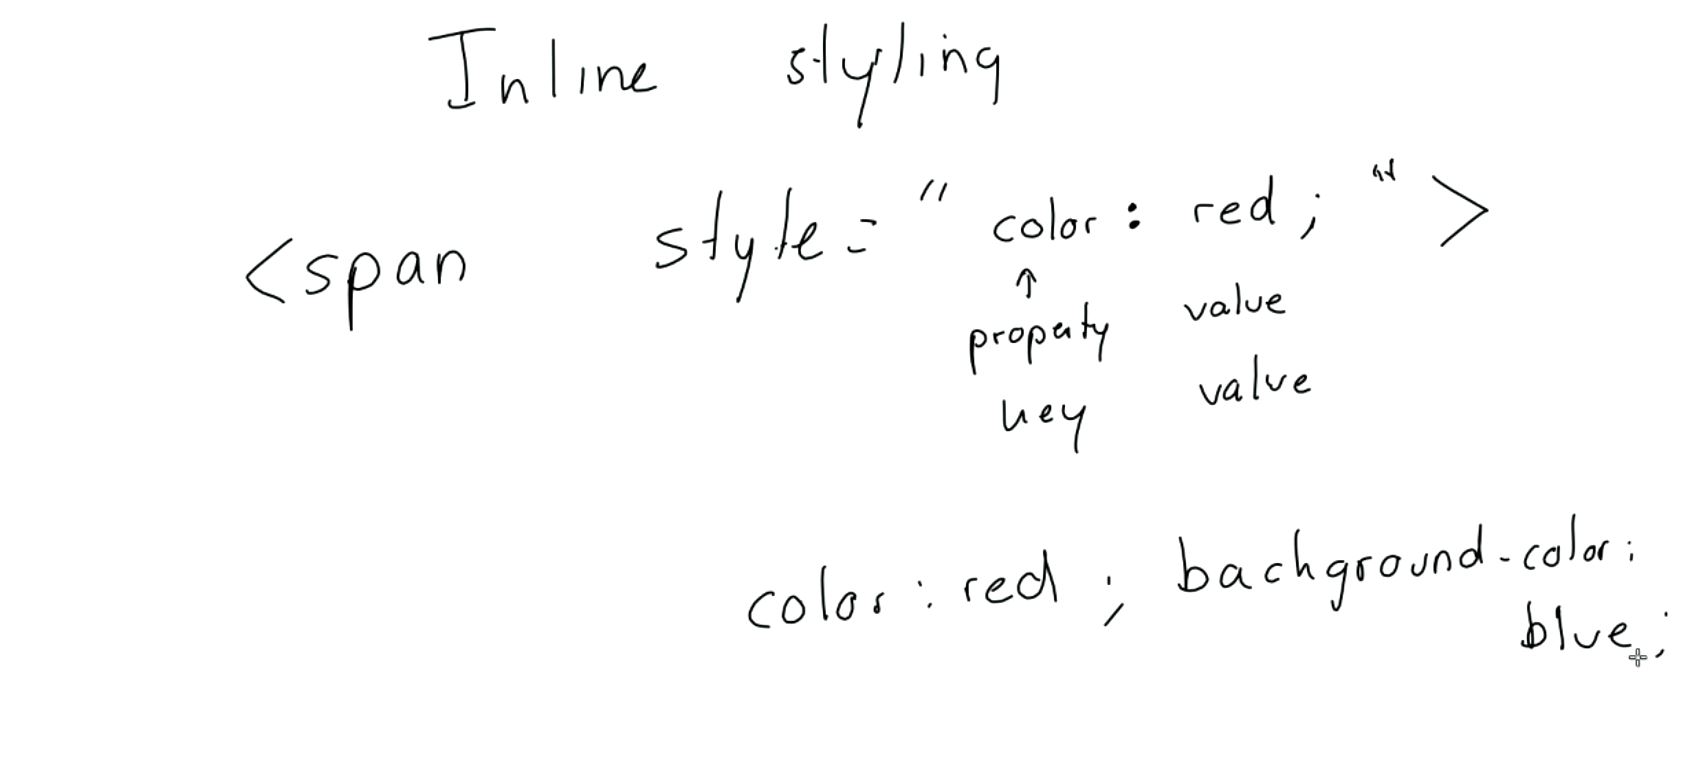 Inline styling
<span style=" color: red; ">
↑
property value
key value
color: red; background-color:
blue;